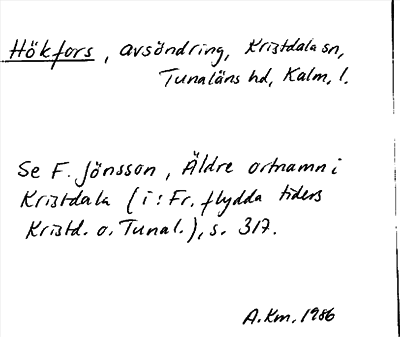 Hökfors, avsöndring, Kristdala sn,
Tunaläns hd, Kalm. l.
Se F. Jönsson, Äldre ortnamn i
Kristdala (i: Fr. flydda tiders
Kristd. o. Tunal.), s. 317.
A.Km. 1986